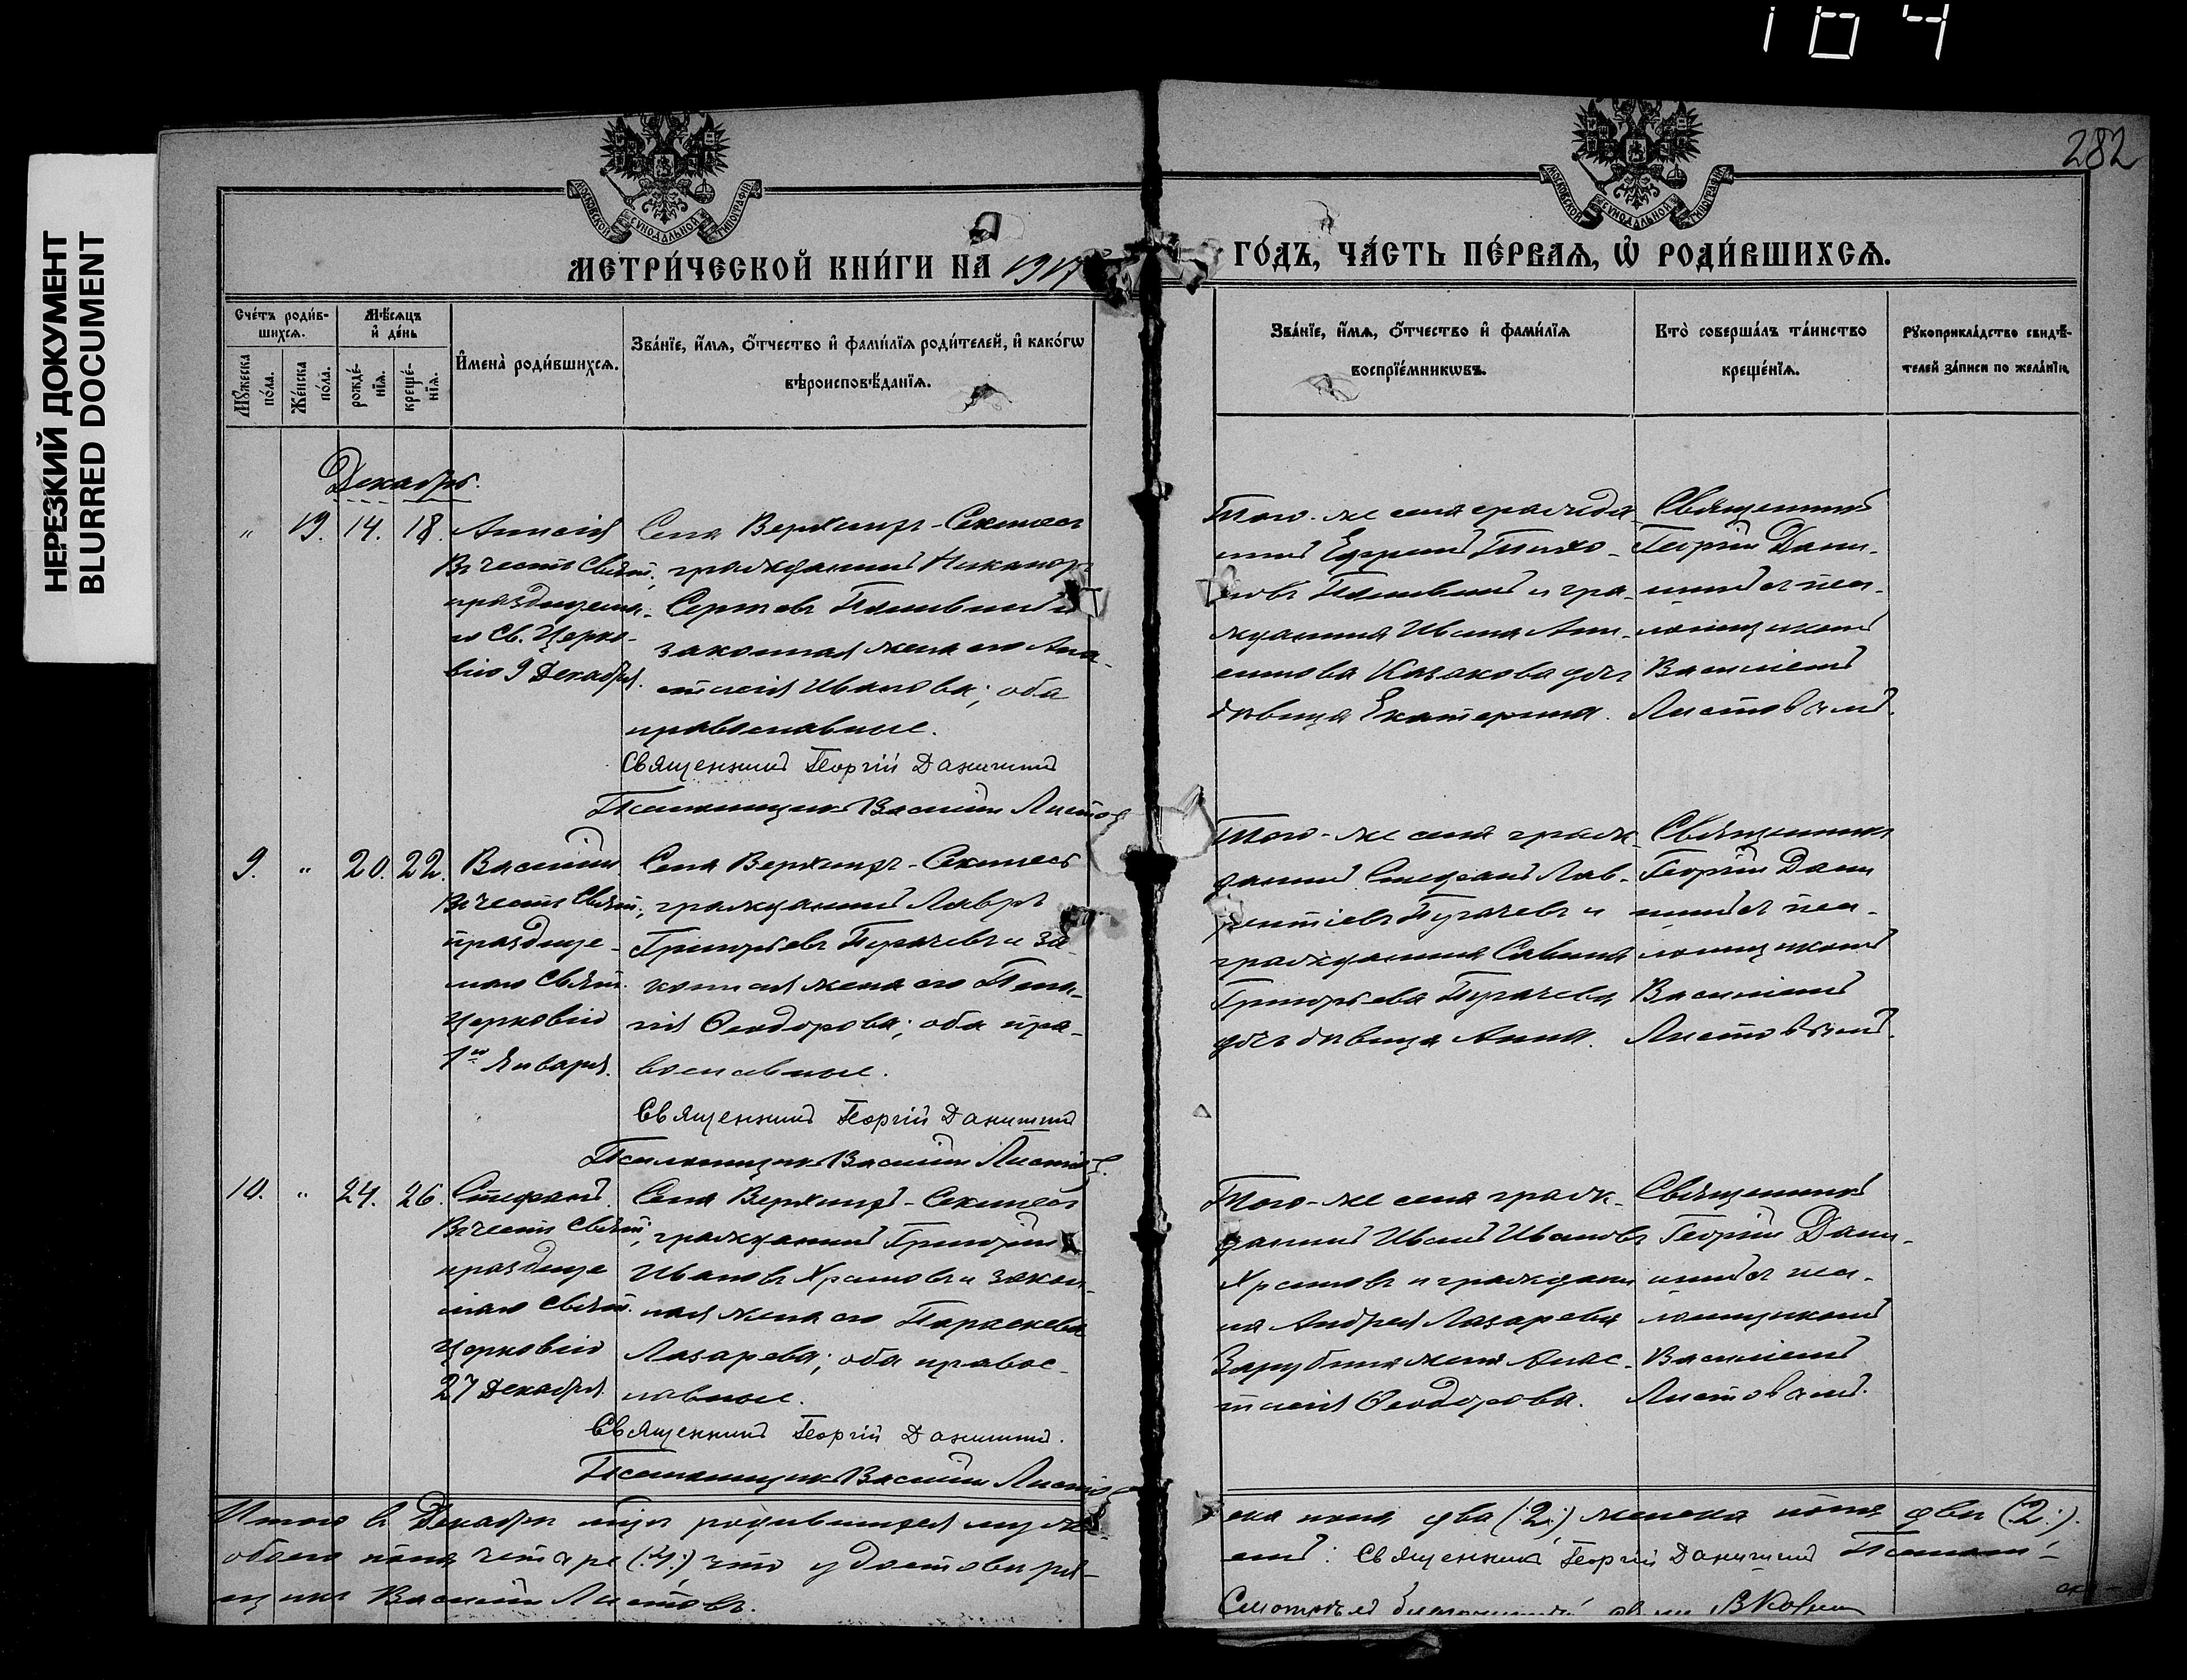 104
НЕРЕЗКИЙ ДОКУМЕНТ
BLURRED DOCUMENT
282
МОСКОВСКОЙ СѴНОДАЛЬНОЙ ТИПОГРАФІИ
МОСКОВСКОЙ СѴНОДАЛЬНОЙ ТИПОГРАФІИ
МЕТРИ́ЧЕСКОЙ КНИ́ГИ НА 1917
ГО́ДЪ, ЧА́СТЬ ПЕ́РВАѦ, Ѡ҆ РОДИ́ВШИХСѦ.
Сче́тъ роди́в-
шихсѧ.
Мꙋ́жеска
по́ла.
Же́нска
по́ла.
Мѣ́сѧцъ
и҆ де́нь
рожде́-
нїѧ.
креще́-
нїѧ.
И҆мена̀ роди́вшихсѧ.
Зва́нїе, и҆́мѧ, ѻ҆́тчество и҆ фами́лїѧ роди́телей, и҆ како́гѡ
вѣроисповѣ́данїѧ.
Зва́нїе, и҆́мѧ, ѻ҆́тчество и҆ фами́лїѧ
воспрїе́мникѡвъ.
Кто̀ соверша́лъ та́инство
креще́нїѧ.
Рꙋкоприкла́дство свидѣ́-
телей за́писи по жела́нїю.
Декабрь.
" 19. 14. 18. Анисія
Въ честь Свят.
празднуема-
го Св. Церко-
вію 9 Декабря.
Села Верхнихъ-Секинесъ
гражданинъ Никаноръ
Сергѣевъ
законная жена его Ана-
стасія Иванова; оба
православные.
Священникъ Георгій Данилинъ
Псаломщикъ Василій Листовъ
Того-же села гражда-
нинъ Ефремъ Тихо-
новъ и гра-
жданина Ивана Ани-
симова Казакова дочь
дѣвица Екатерина.
Священникъ
Георгій Дани-
линъ съ пса-
ломщикомъ
Василіемъ
Листовымъ.
9. " 20. 22. Василій
Въ честь Свят.,
празднуе-
маго Свят.
Церковію
1го Января.
Села Верхнихъ-Секинесъ
гражданинъ Лавръ
Григорьевъ Пугачевъ и за-
конная жена его Пела-
гія Ѳеодорова; оба пра-
вославные.
Священникъ Георгій Данилинъ
Псаломщикъ Василій Листовъ.
Того-же села граж-
данинъ Стефанъ Лав-
рентіевъ Пугачевъ и
гражданина Савина
Григорьева Пугачева
дочь дѣвица Анна.
Священникъ
Георгій Дани
линъ съ пса-
ломщикомъ
Василіемъ
Листовымъ.
10. " 24. 26. Стефанъ.
Въ честь Свят.,
празднуе
маго Свят.
Церковію
27 Декабря.
Села Верхнихъ-Секинесъ
гражданинъ Григорій
Ивановъ Храмовъ и закон-
ная жена его Параскева
Лазарева; оба правос-
лавные.
Священникъ Георгій Данилинъ.
Псаломщикъ Василій Листовъ
Того-же села граж-
данинъ Иванъ Ивановъ
Храмовъ и граждани
на Андрея Лазарева
Зарубина жена Анас-
тасія Ѳеодорова.
Священникъ
Георгій Дани-
линъ съ пса-
ломщикомъ
Василіемъ
Листовымъ.
Итого въ Декабрѣ мцѣ родившихся муже
ска пола два (:2:) женска пола двѣ (:2:).
обоего пола четыре (:4:), что удостовѣря-
емъ: Священникъ Георгій Данилинъ Псалом-
щикъ Василій Листовъ.